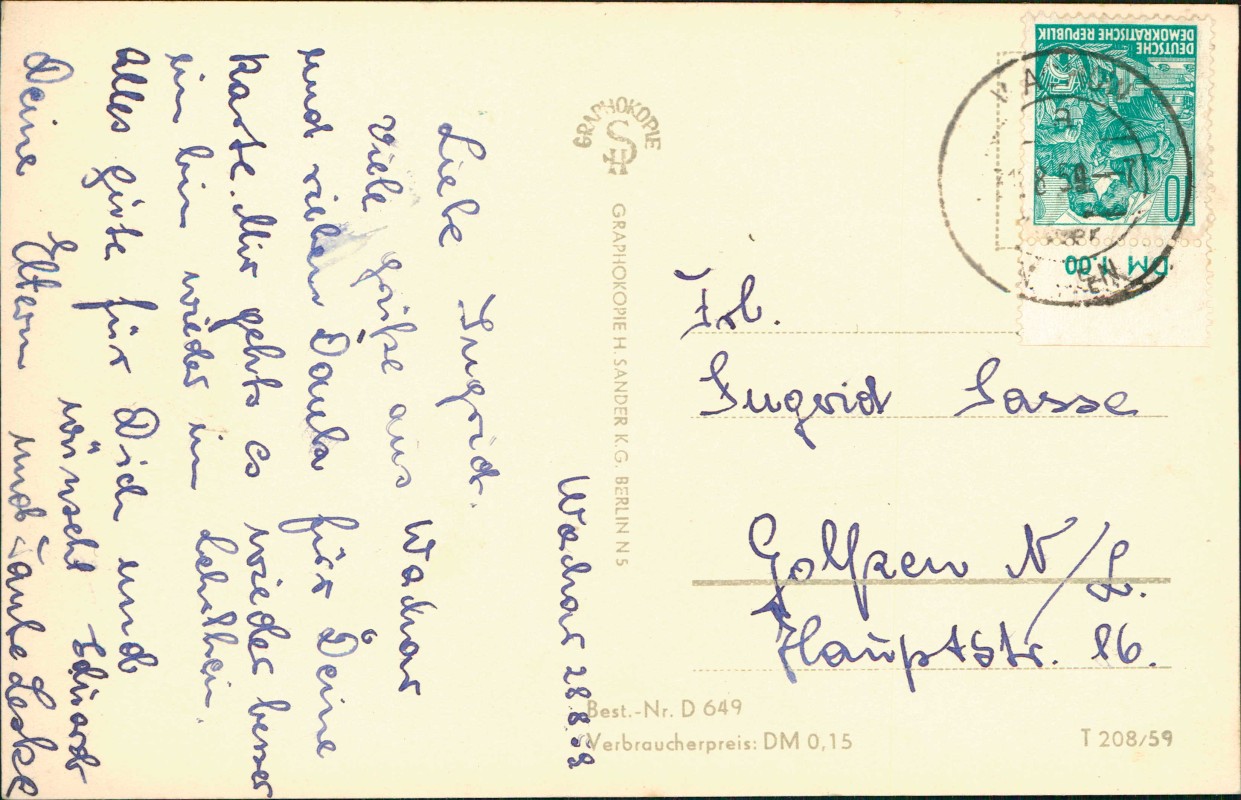 Wachar 28.8.59
Liebe Ingrid.
Viele Grüße aus Wachar
und vielen Dank für Deine
Karte. Mir gehts es wieder besser
bin wieder in
Alles gute für Dich und
Deine Eltern wünscht Eduard
und Tante Leske
GRAPHOKOPIE
GRAPHOKOPIE H. SANDER K.G. BERLIN N 5
DEUTSCHE
DEMOKRATISCHE REPUBLIK
10
DM 1.00
Frl.
Ingrid Sasse
Golßen N/L.
Hauptstr. 16.
Best.-Nr. D 649
Verbraucherpreis: DM 0,15
T 208/59